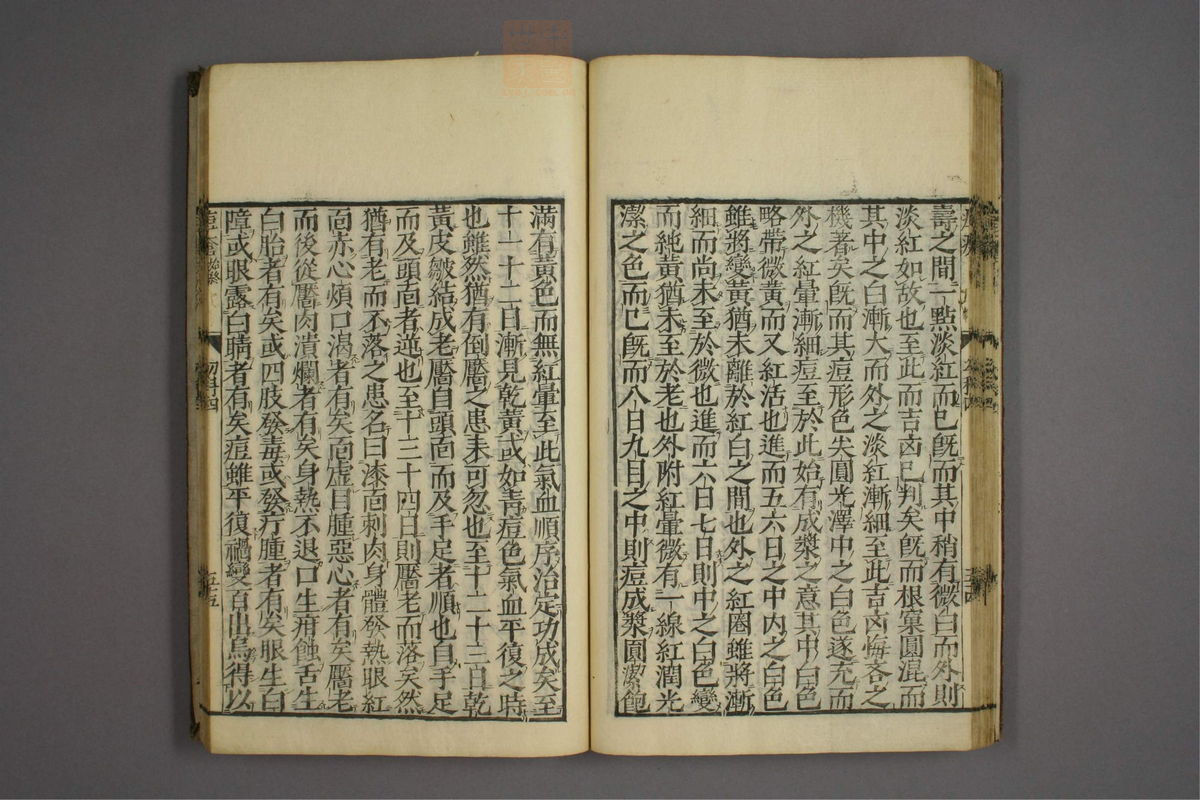 壽之間一點淡紅而已旣而其中稍有微白而外則
淡紅如故也至此而吉凶已判矣旣而根窠圓混而
其中之白漸大而外之淡紅漸細至此吉凶悔吝之
機著矣旣而其痘形色尖圓光澤中之白色遂充而
外之紅暈漸細痘至於此始有成漿之意其中白色
略帶微黃而又紅活也進而五六日之中內之白色
雖將變黃猶未離於紅白之間也外之紅圈雖將漸
細而尚未至於微也進而六日七日則中之白色變
而純黃猶未至於老也外附紅暈微有一線紅潤光
潔之色而已旣而八日九日之中則痘成漿圓潔飽
滿有黃色而無紅暈至此氣血順序治定功成矣至
十一十二日漸見乾黃或如靑痘色氣血平復之時
也雖然猶有倒靨之患未可忽也至十二十三日乾
黃皮皺結成老靨自頭面而及手足者順也自手足
而及頭面者逆也至十三十四日則靨老而落矣然
猶有老而不落之患名曰漆面刺肉身體發熱眼紅
面赤心煩口渴者有矣面虛目腫惡心者有矣靨老
而後從靨肉潰爛者有矣身熱不退口生疳蝕舌生
白胎者有矣或四肢發毒或發疔腫者有矣眼生白
障或眼露白睛者有矣痘雖平復禍變百出烏得以